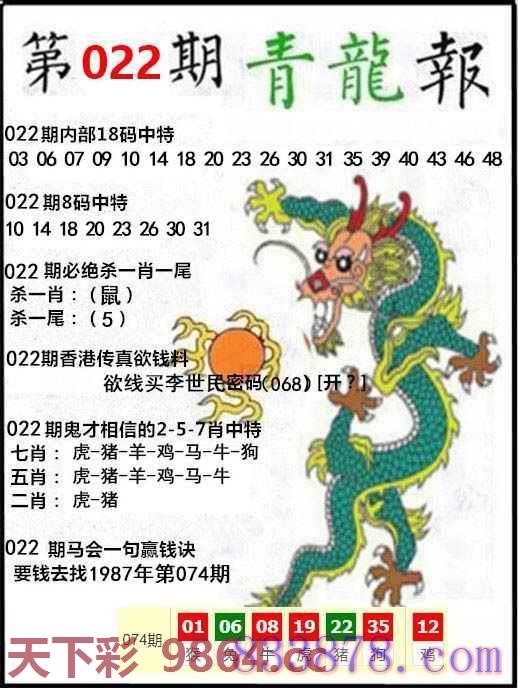 第022期青龍報
022期内部18码中特
03 06 07 09 10 14 18 20 23 26 30 31 35 39 40 43 46 48
022期8码中特
10 14 18 20 23 26 30 31
022 期必绝杀一肖一尾
杀一肖：(鼠)
杀一尾：(5)
022期香港传真欲钱料
欲线买李世民密码(068) [开？]
022期鬼才相信的2-5-7肖中特
七肖：虎-猪-羊-鸡-马-牛-狗
五肖：虎-猪-羊-鸡-马-牛
二肖：虎-猪
022 期马会一句赢钱诀
要钱去找1987年第074期
074期 01 06 08 19 22 35 12
猴 兔 牛 虎 猪 狗 鸡
天下彩 9864.cc